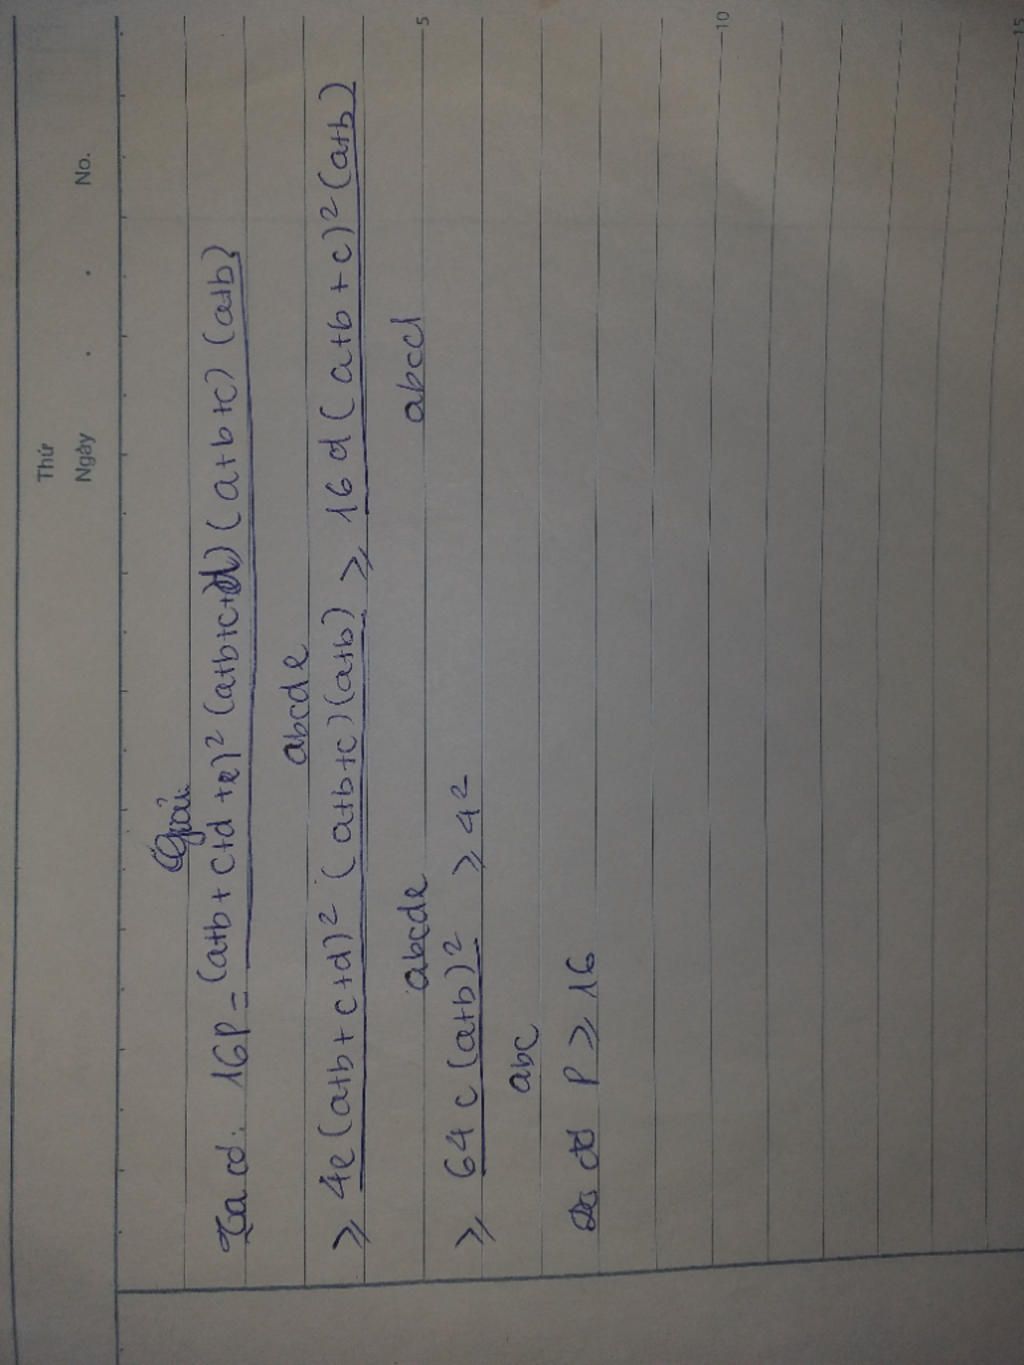 Thứ
Ngày . . No.
Giải
Ta có: 16P = (a+b+c+d+e)² (a+b+c+d)(a+b+c)(a+b)
abcde
≥ 4e(a+b+c+d)² (a+b+c)(a+b) ≥ 16d(a+b+c)²(a+b)
abcde abcd
5
≥ 64c(a+b)² ≥ 4²
abc
Do đó P ≥ 16
10
15